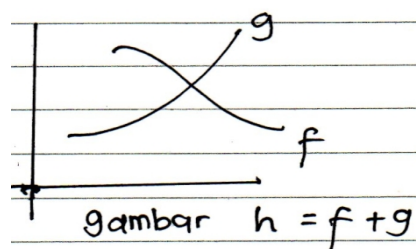 g
f
gambar h = f + g